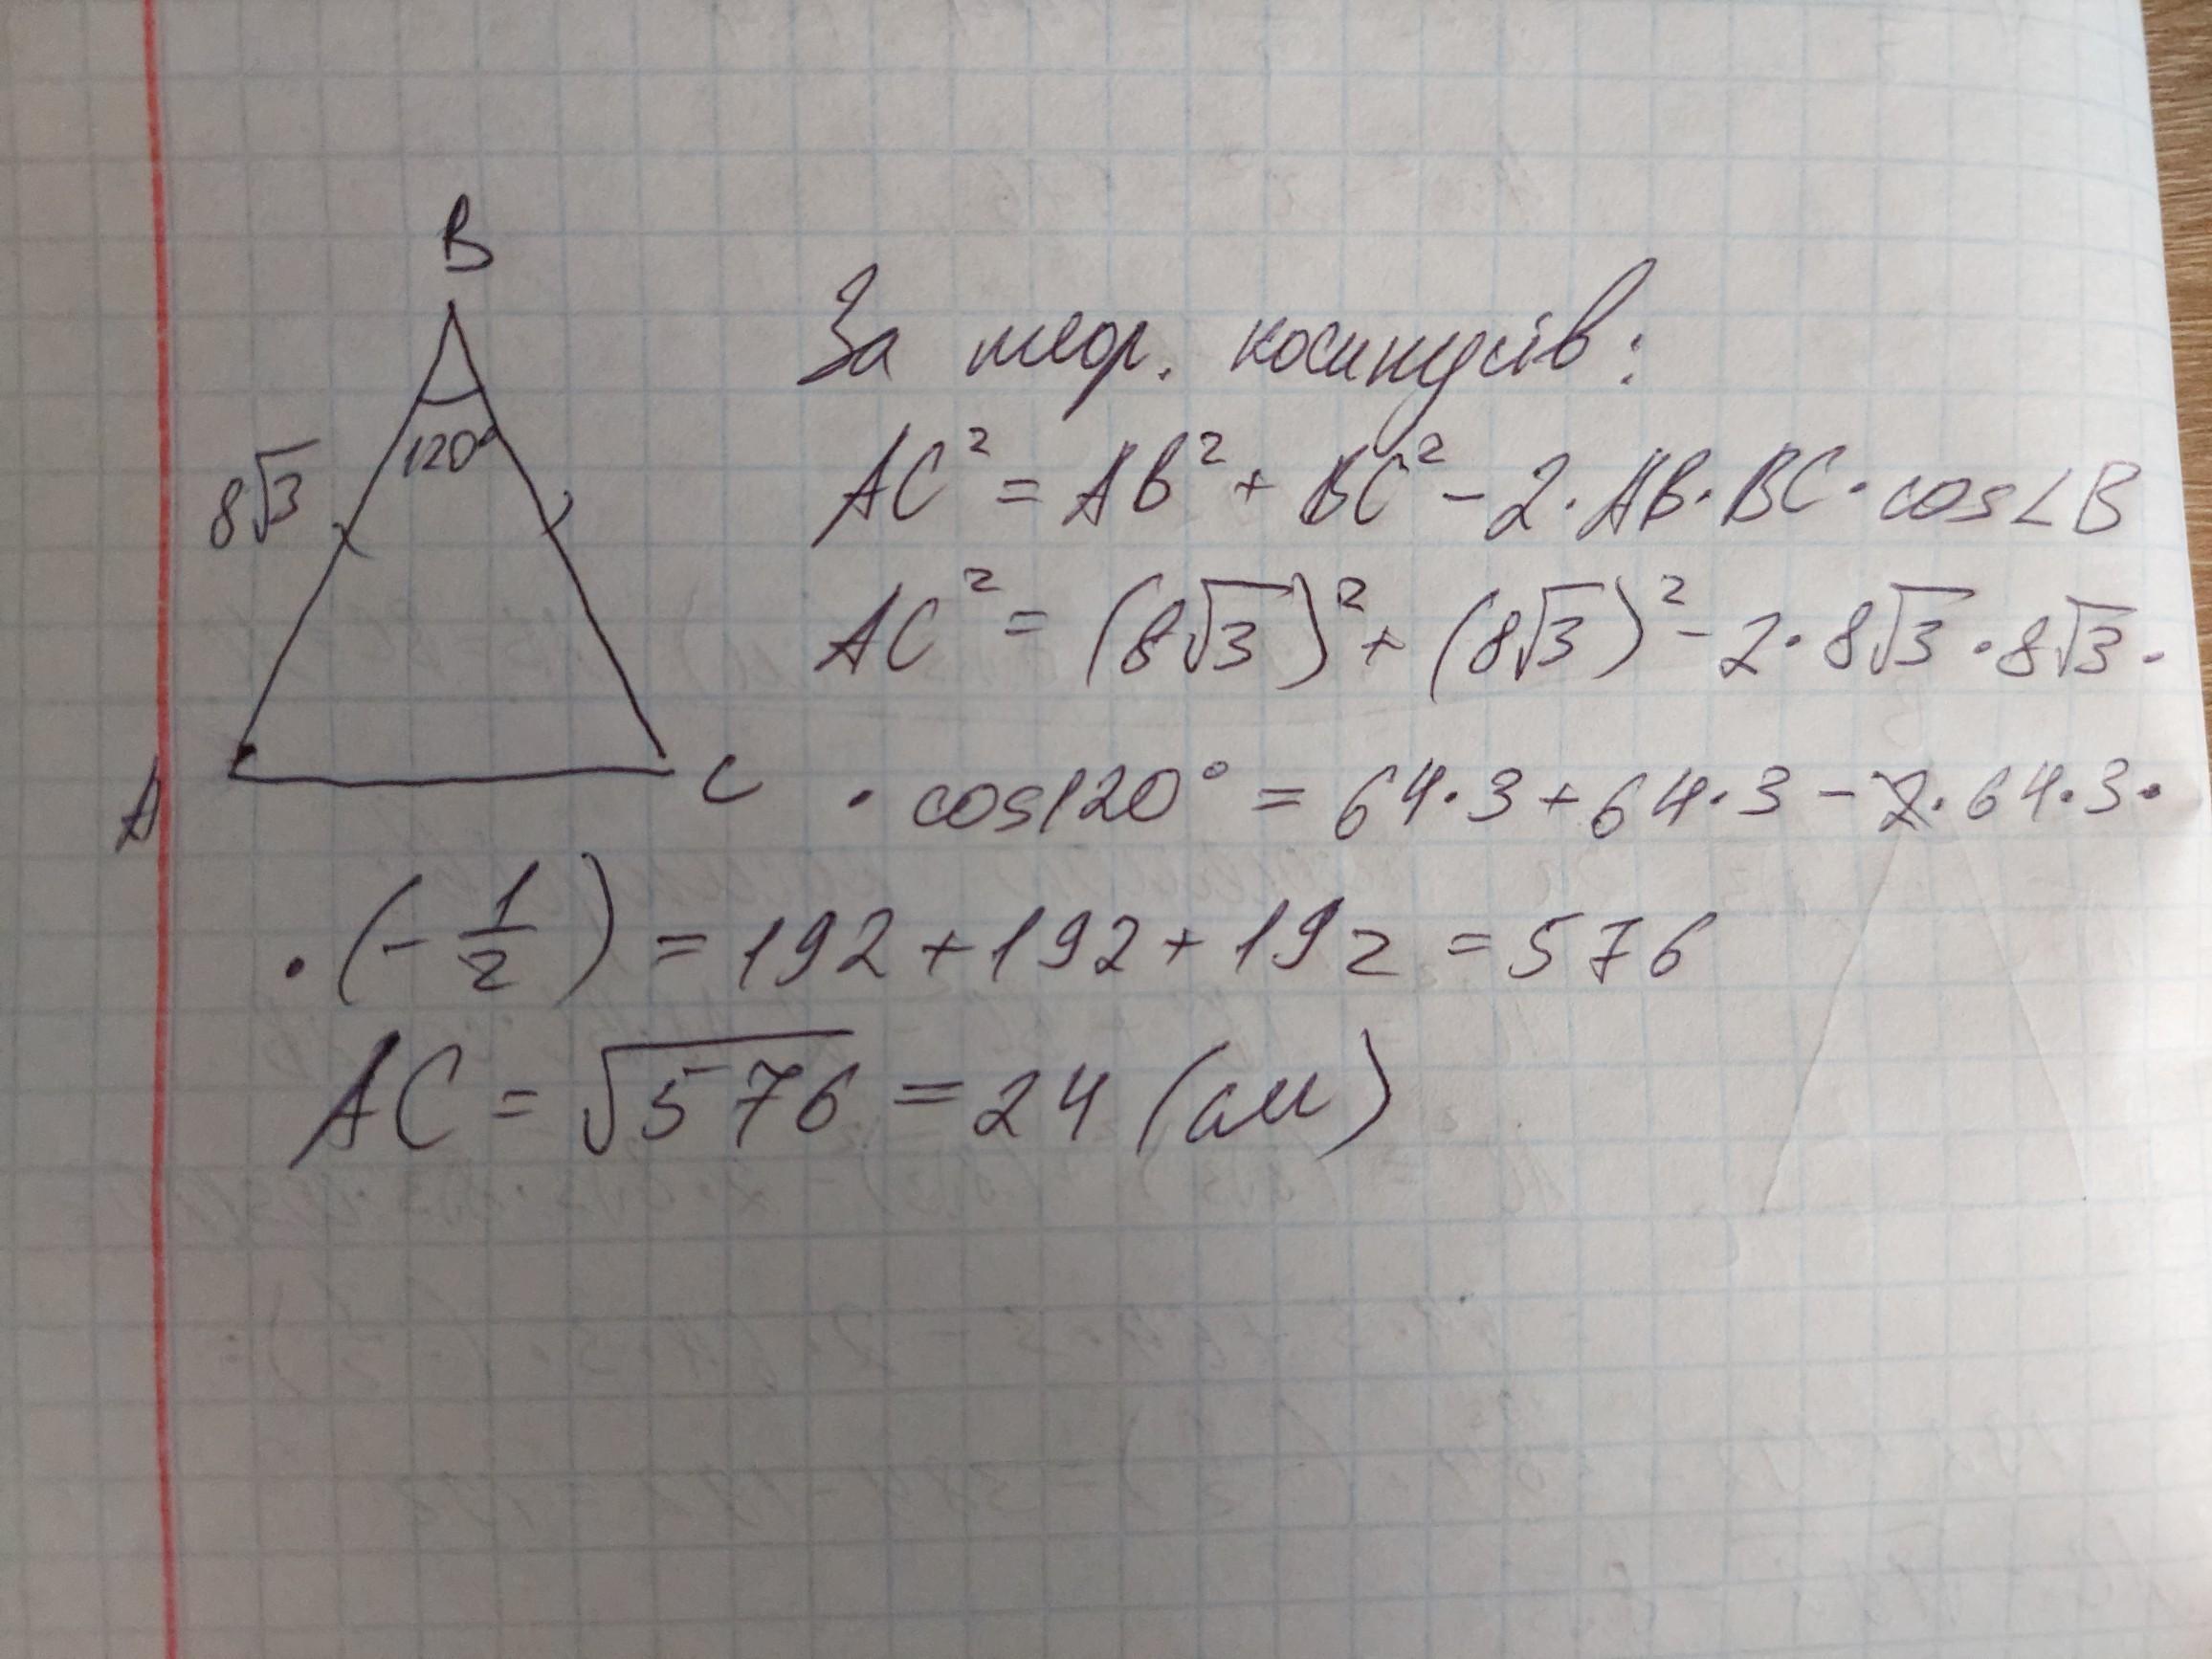 B
120°
8√3
A
C
За теор. косинусів:
AC² = AB² + BC² - 2·AB·BC·cos∠B
AC² = (8√3)² + (8√3)² - 2·8√3·8√3·
·cos120° = 64·3 + 64·3 - 2·64·3·
·(-1/2) = 192 + 192 + 192 = 576
AC = √576 = 24 (см)